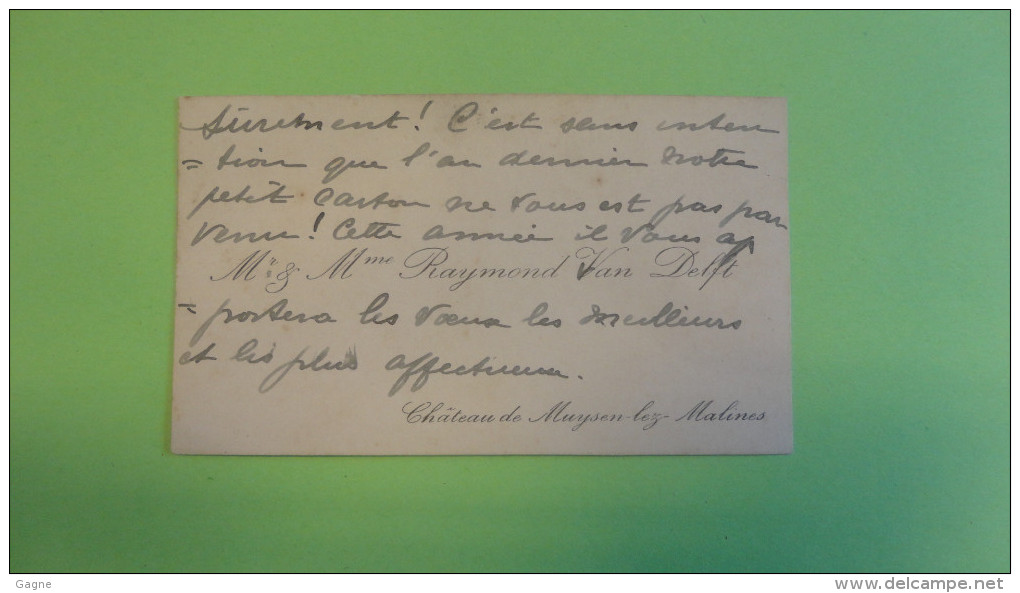 Sûrement! C'est sans inten
= tion que l'an dernier notre
petit carton ne vous est pas par
venu! Cette année il vous ap
Mr. & Mme Raymond Van Delft
= portera les vœux les meilleurs
et les plus affectueux.
Château de Muysen-lez-Malines
Gagne
www.delcampe.net